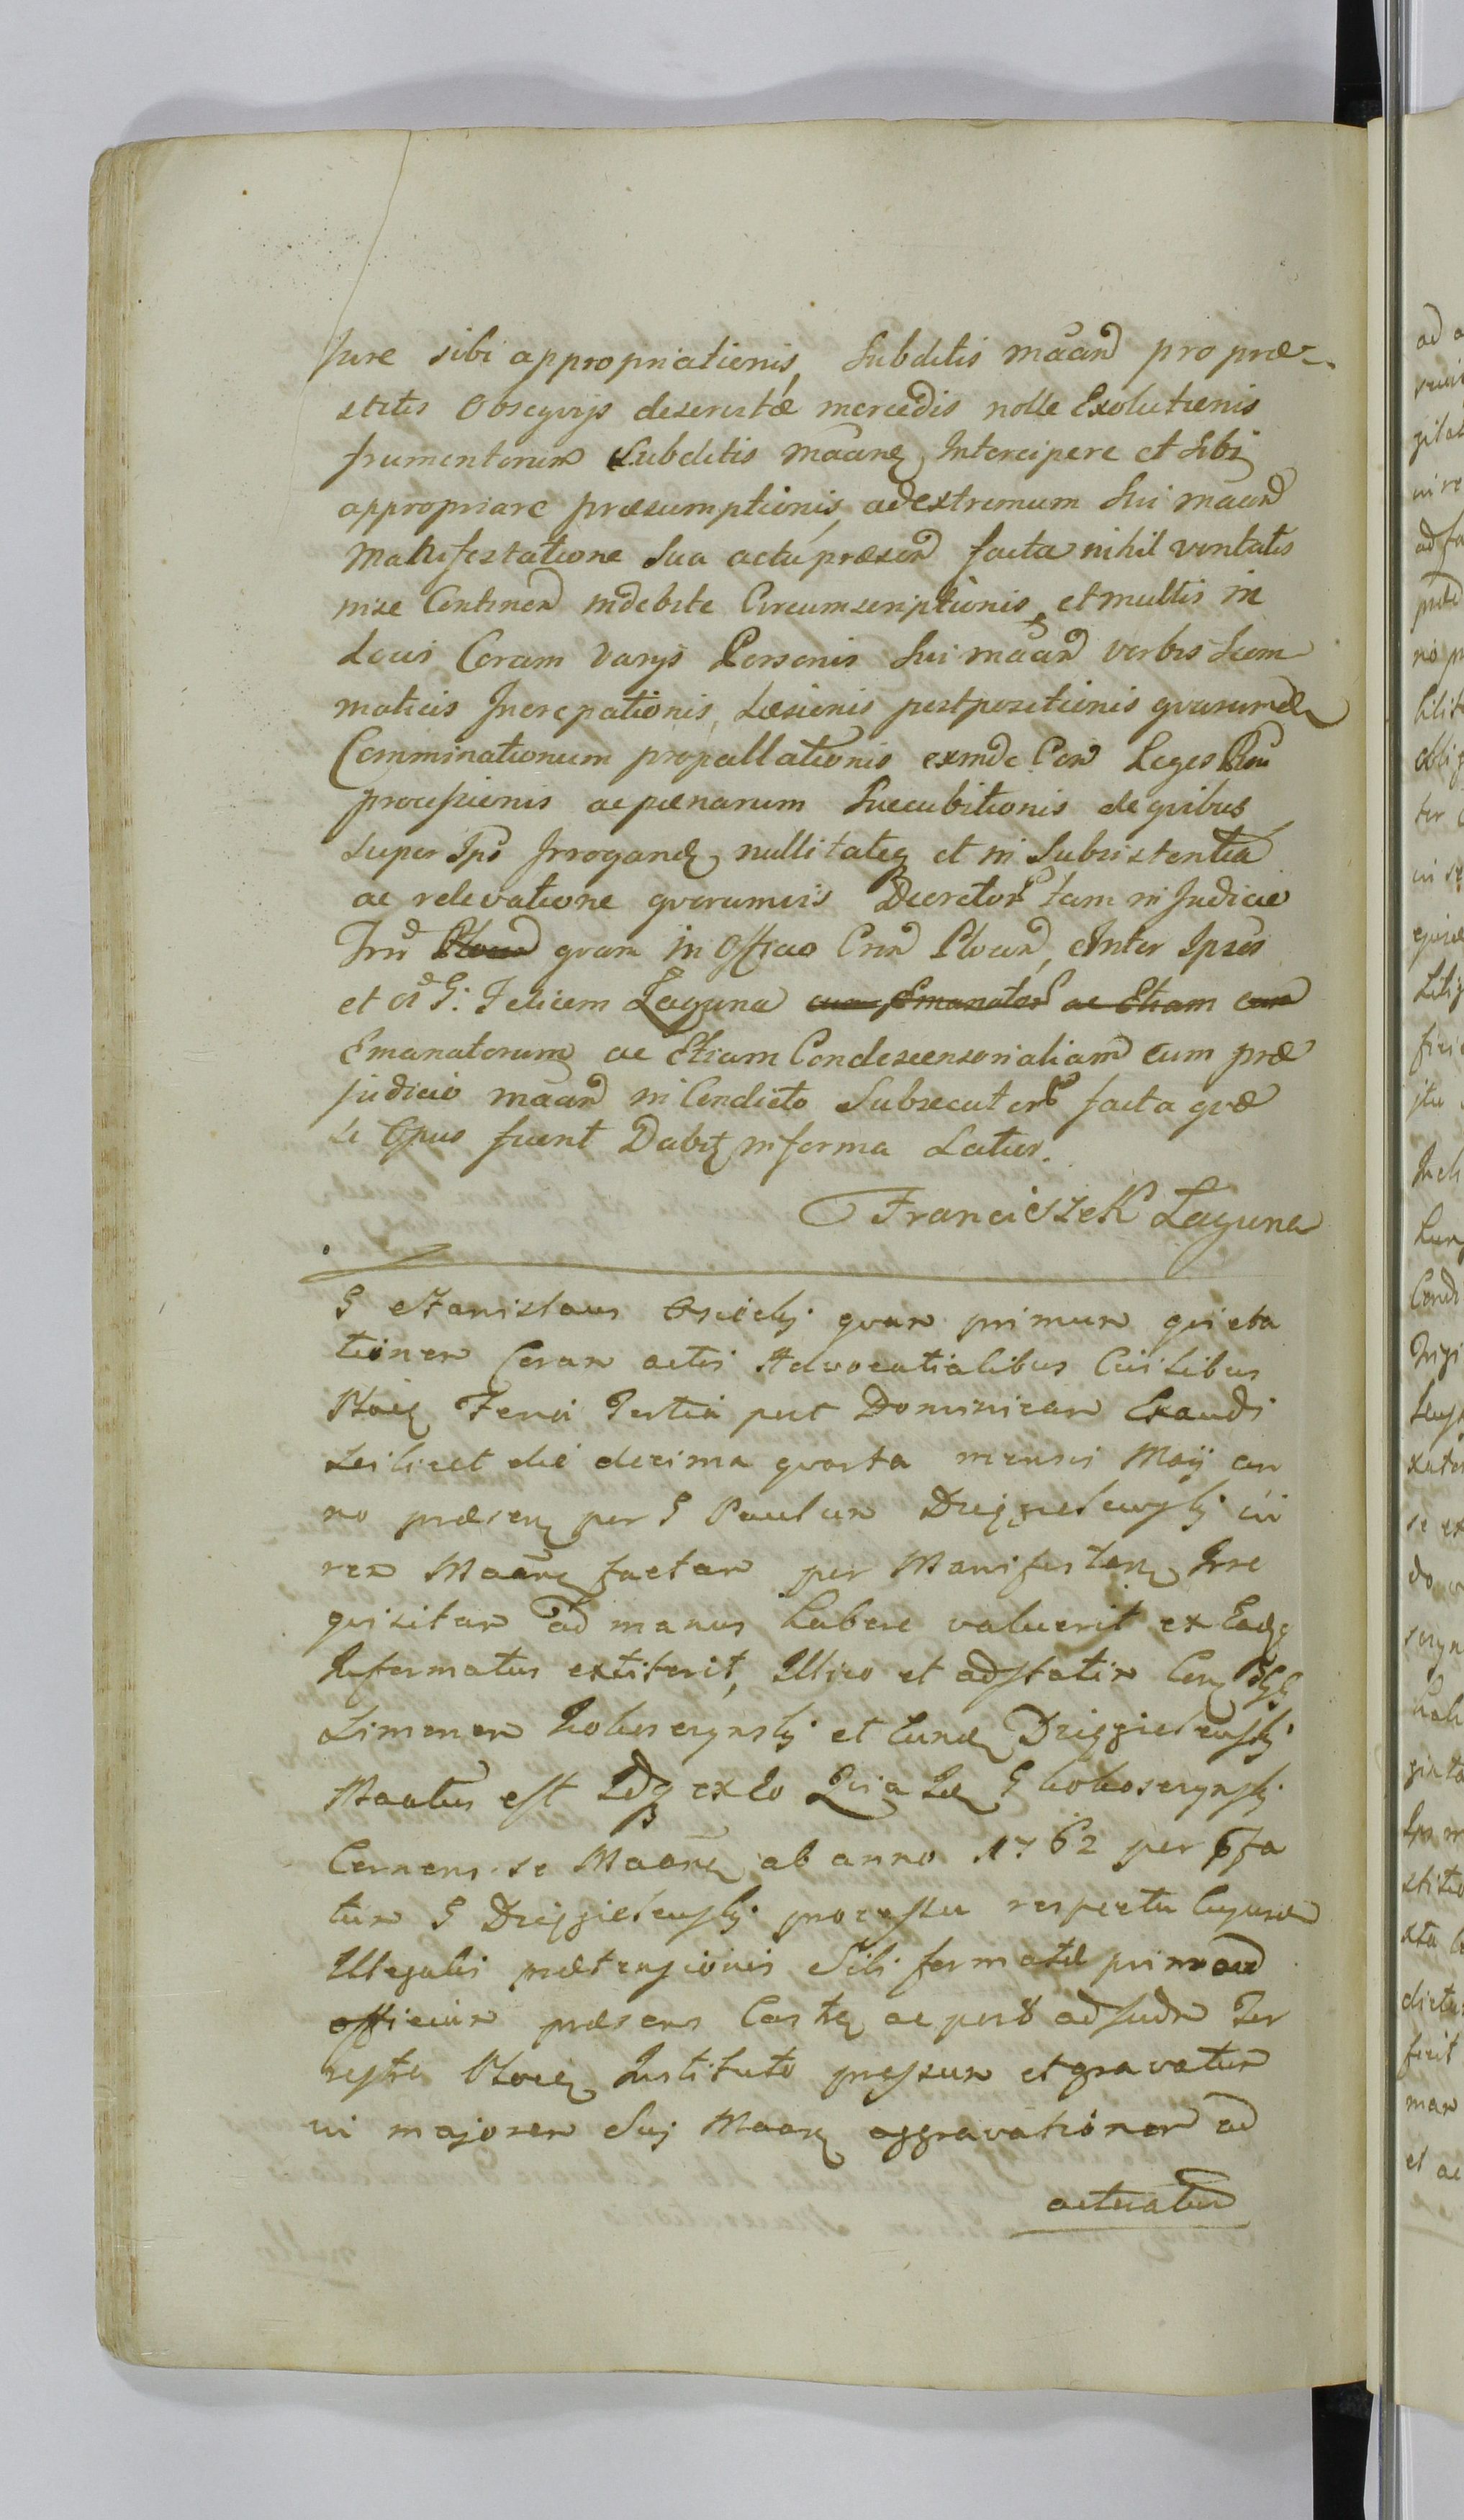 Jure sibi appropriationis, Subditis maan̄d pro præ-
stitis Obsequijs deservitæ mercedis nolle Exolutionis
frumentorum Subditis maanę Intercipere et Sibi
appropriare præsumptionis, ad extremum Sui maan̄d
Manifestatione Sua actu præsen̄d facta nihil veritatis
in se Continen̄d indebite Circumscriptionis, et multis in
Locis Coram Varijs Personis Sui maan̄d verbis Scom
maticis Increpationis, Læsionis postpositionis qvarund
Comminationum propallationis exinde Con̄ Leges
processionis ac pœnarum Succubitionis de qvibus
Super Ipō Irrogandę nullitateq et in Subsistentia
ac relevatione qvorumvis Decretor tam in Judicio
Trrī Plocen̄ qvam in Officio Crn̄ Plocen̄, Inter Ipsos
et G: Felicem Laguna cum Emanator ac Etiam cum
Emanatorum ac Etiam Condescensorialium cum præ
judicio maan̄d in Condicto Subsecutor facta qvæ
Si Opus fuerit Dabit in forma Latius.
Franciszek Laguna
G Stanislaus Osiecky qvam primum qvieta
tionem Coram actis Advocatialibus Civilibus
Plocę Feria Tertia post Dominicam Exaudi
Scilicet die decima qvarta mensis Maij an
no præsenę per G Paulum Dzięgielewsky in
rem Maanę factam per Manifestanę Irre
qvisitam ad manus habere valuerit ex Eadę
Informatus extiterit, Illico et adstatim Conę
Simonem Kokoszynsky et Eundę Dzięgielewsky
Maatus est Idq ex Eo Qvia Idę G Kokoszynsky
Cernens se Maanę ab anno 1762 per Sfa
tum G Dzięgielewsky processu respectu Cujusd
Illegalis prætensionis Sibi formatæ primo ad
officium præsens Castrę ac post ad Judm Ter
restre Plocę Instituto pressum et gravatum
in majorem Suj Maanę aggravationem ad
actuatum